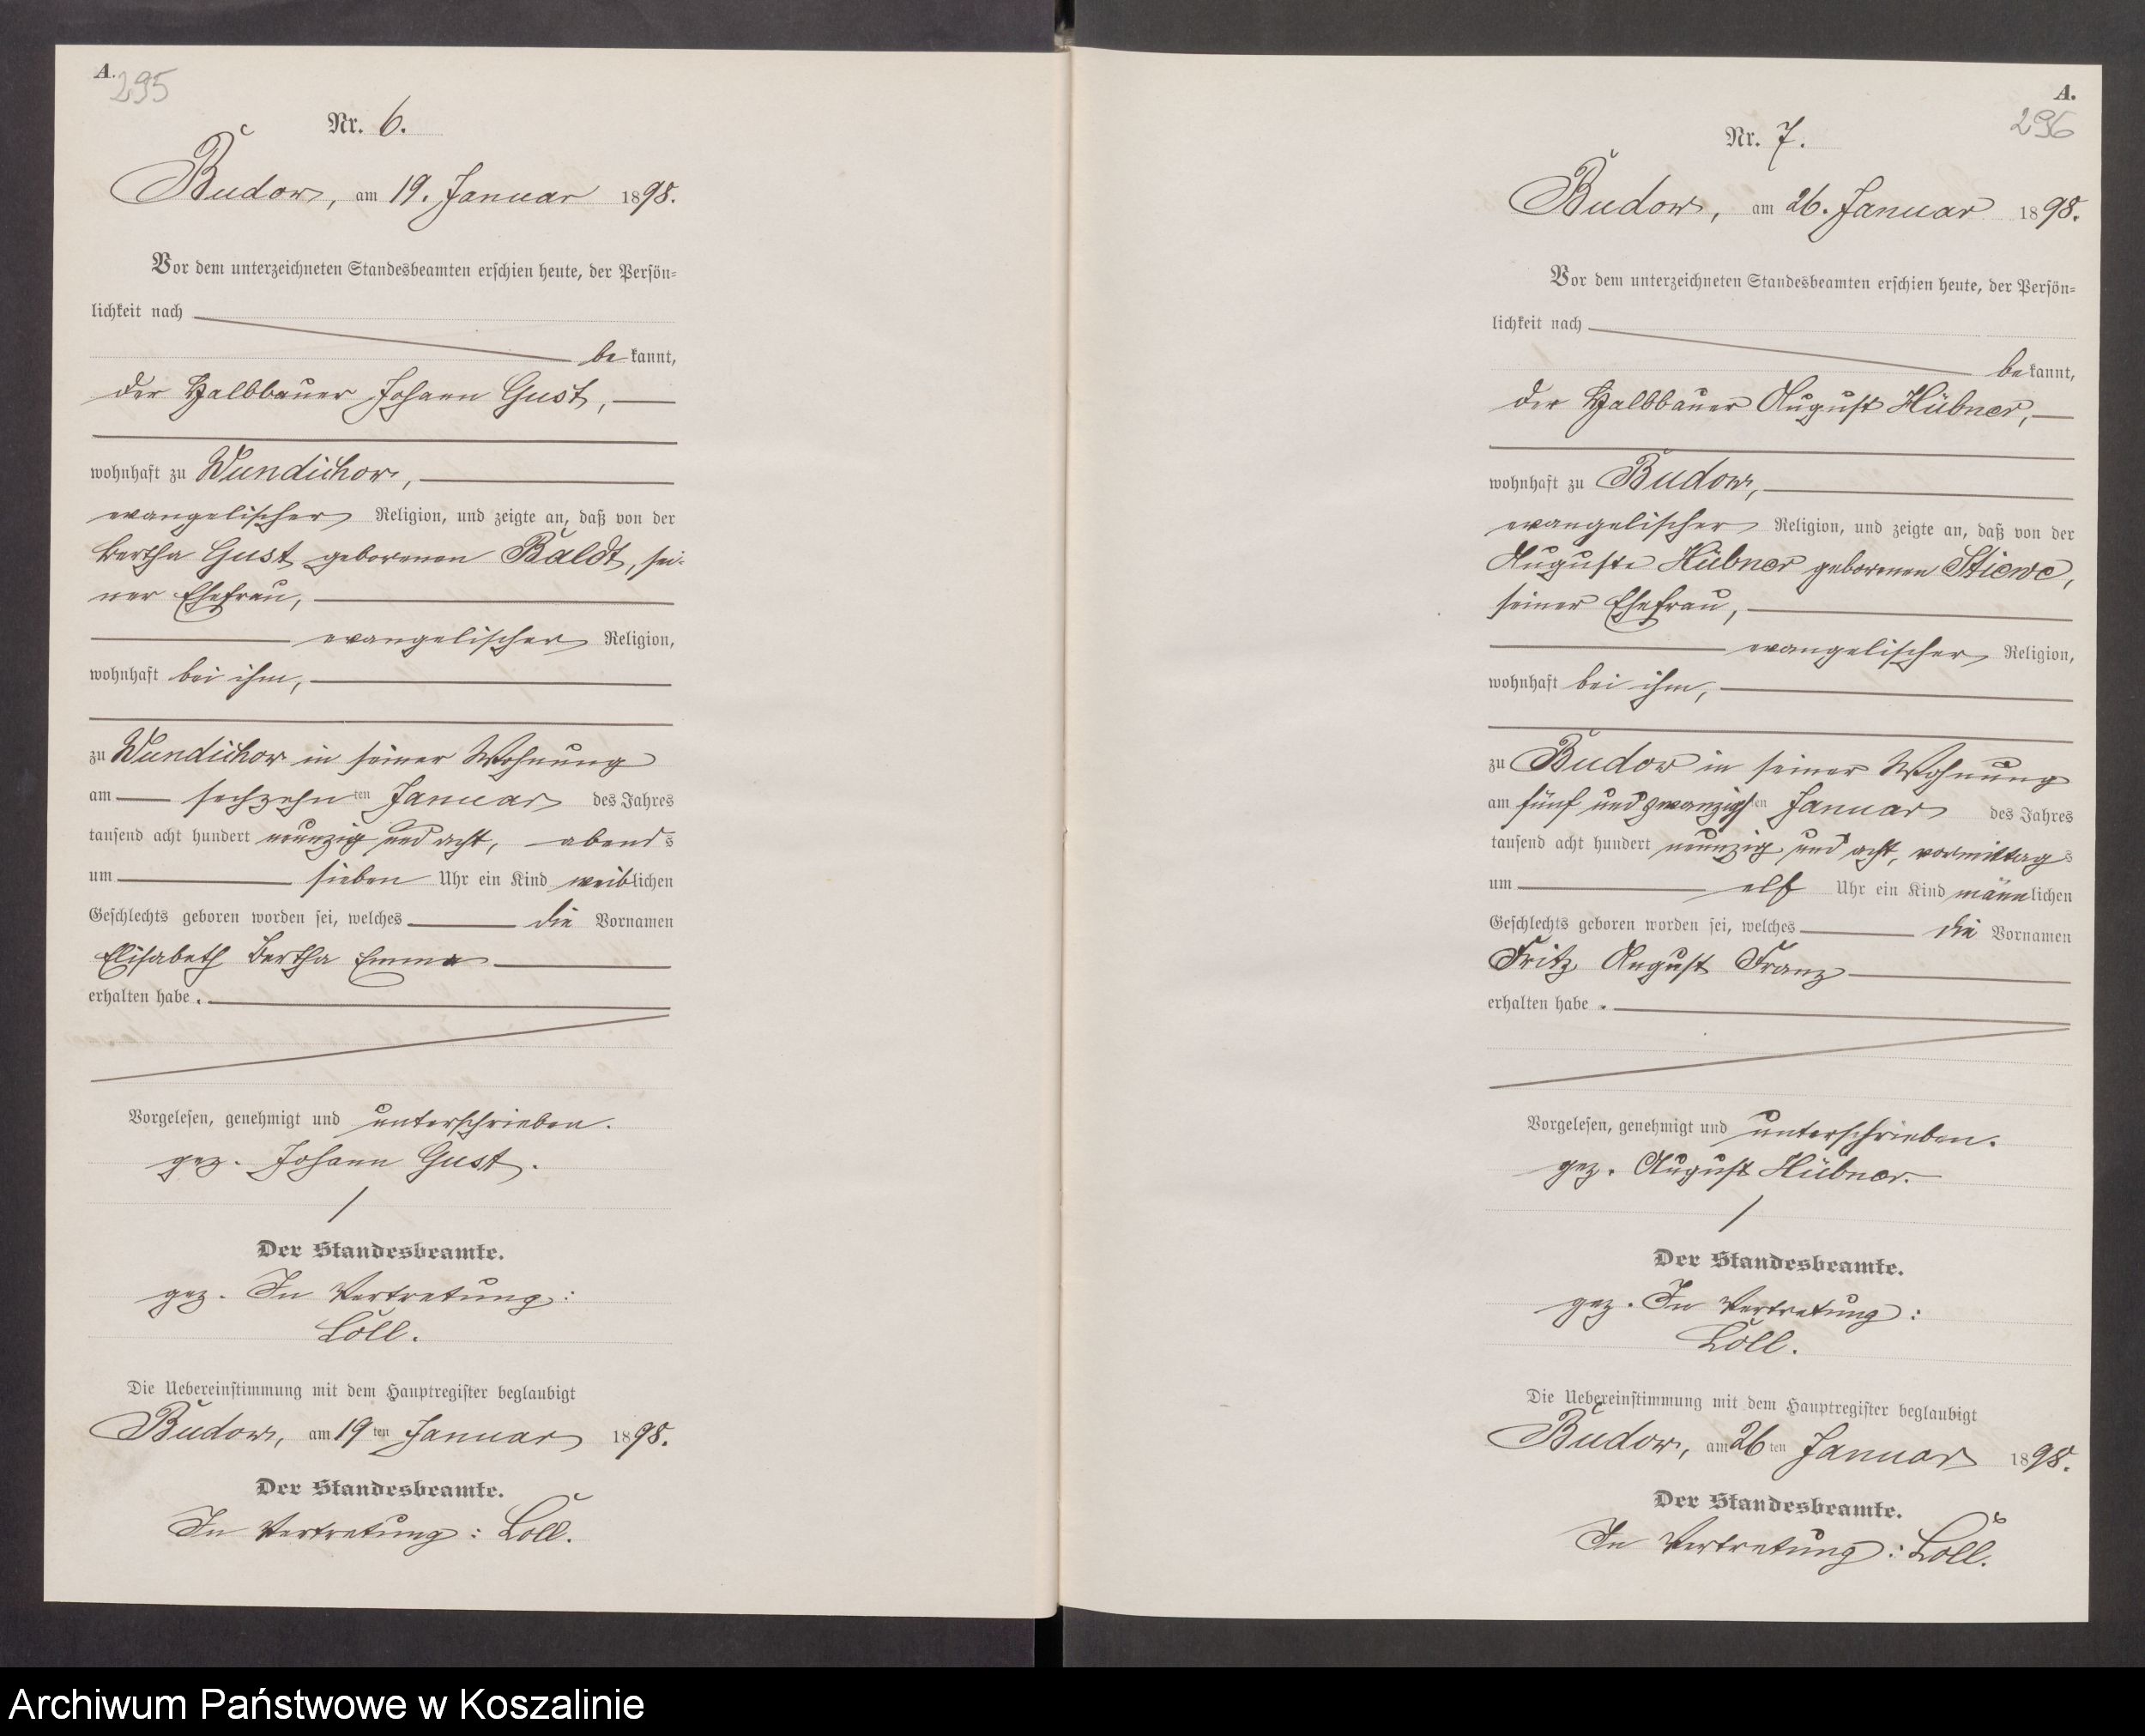 A.
295
Nr. 6.
Budow, am 19. Januar 1898.
Vor dem unterzeichneten Standesbeamten erschien heute, der Persön-
lichkeit nach
be kannt,
der Halbbauer Johann Gust,
wohnhaft zu Wundichow,
evangelischer Religion, und zeigte an, daß von der
Bertha Gust geborenen Baldt, sei-
ner Ehefrau,
evangelischer Religion,
wohnhaft bei ihm,
zu Wundichow in seiner Wohnung
am sechzehn ten Januar des Jahres
tausend acht hundert neunzig und acht, abend s
um sieben Uhr ein Kind weiblichen
Geschlechts geboren worden sei, welches die Vornamen
Elisabeth Bertha Emma
erhalten habe.
Vorgelesen, genehmigt und unterschrieben.
gez. Johann Gust.
Der Standesbeamte.
gez. In Vertretung:
Loll.
Die Uebereinstimmung mit dem Hauptregister beglaubigt
Budow, am 19 ten Januar 1898.
Der Standesbeamte.
In Vertretung: Loll.
A.
296
Nr. 7.
Budow, am 26. Januar 1898.
Vor dem unterzeichneten Standesbeamten erschien heute, der Persön-
lichkeit nach
be kannt,
der Halbbauer August Hübner,
wohnhaft zu Budow,
evangelischer Religion, und zeigte an, daß von der
Auguste Hübner geborenen Stiewe,
seiner Ehefrau,
evangelischer Religion,
wohnhaft bei ihm,
zu Budow in seiner Wohnung
am fünf und zwanzigs ten Januar des Jahres
tausend acht hundert neunzig und acht, vormittag s
um elf Uhr ein Kind männlichen
Geschlechts geboren worden sei, welches die Vornamen
Fritz August Franz
erhalten habe.
Vorgelesen, genehmigt und unterschrieben.
gez. August Hübner.
Der Standesbeamte.
gez. In Vertretung:
Loll.
Die Uebereinstimmung mit dem Hauptregister beglaubigt
Budow, am 26 ten Januar 1898.
Der Standesbeamte.
In Vertretung: Loll.
Archiwum Państwowe w Koszalinie